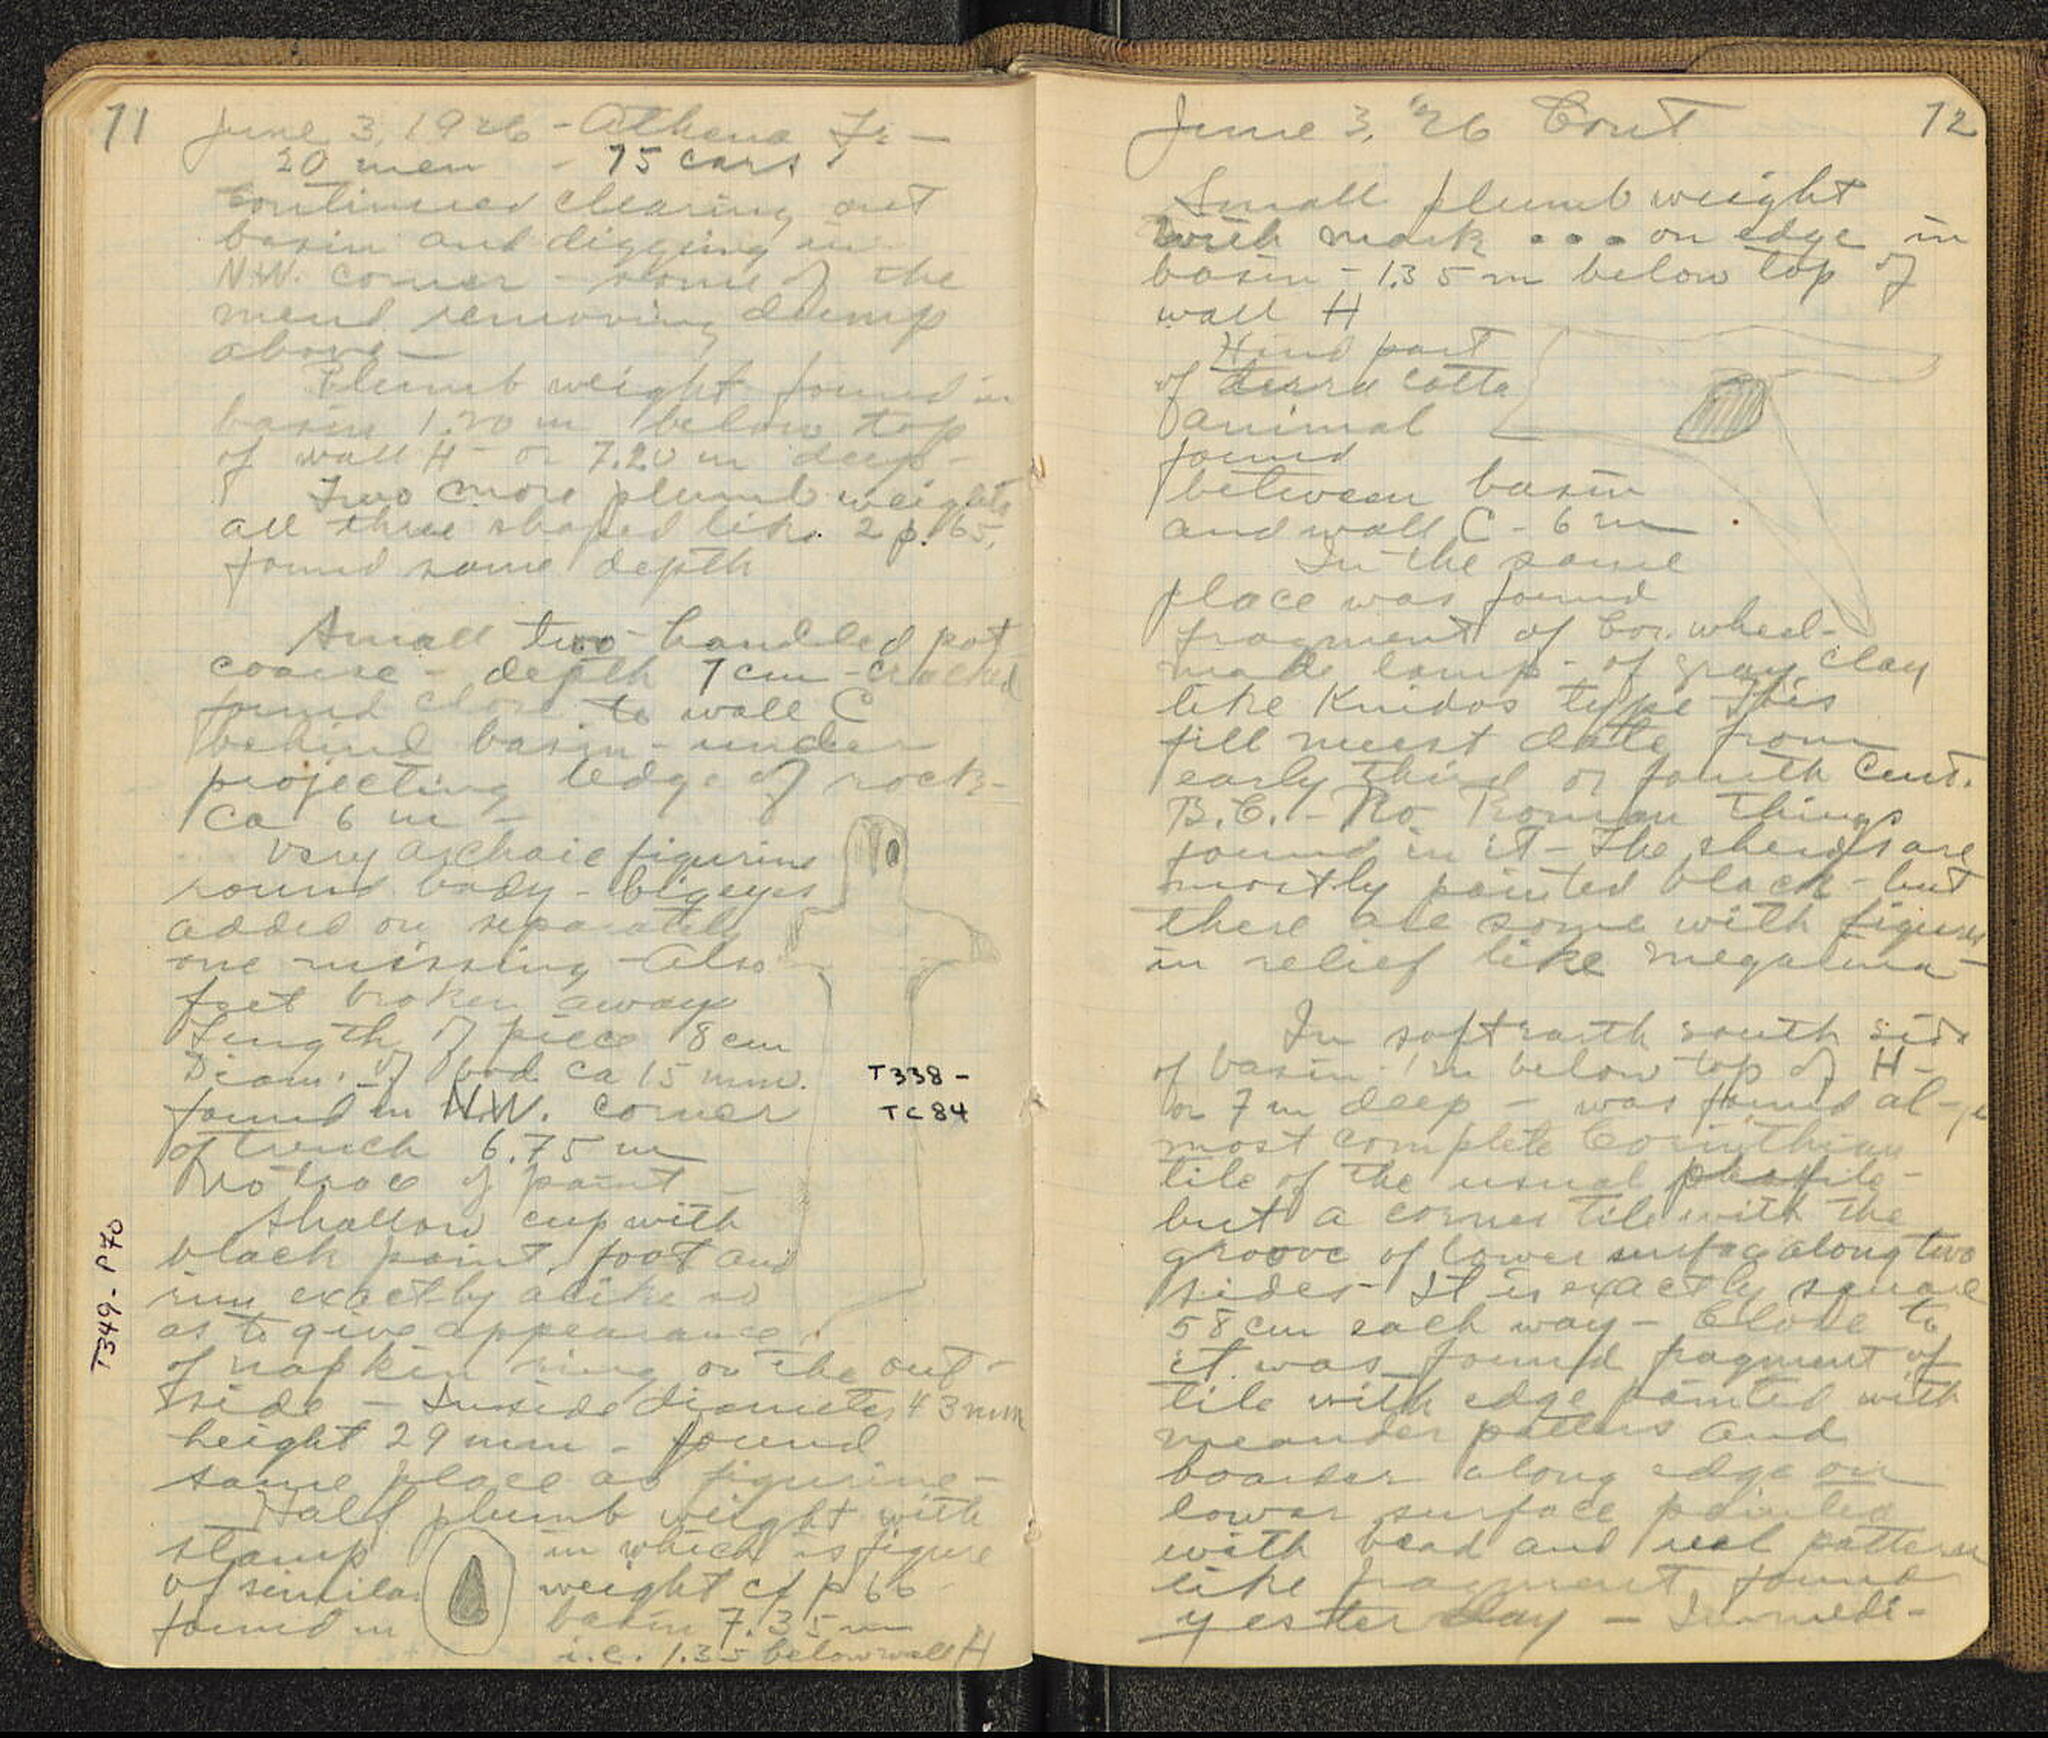 71
June 3, 1926 - Athena Tr. -
20 men - 75 cars
Continued clearing out
basin and digging in
N.W. corner - some of the
mend removing dump
above -
Plumb weight found in
basin 1.20 m below top
of wall H - or 7.20 m deep -
Two more plumb weights
all three shaped like 2 p. 65,
found same depth
Small two-handled pot
coarse - depth 7 cm - cracked
found close to wall C
behind basin - under
projecting ledge of rock -
ca 6 m -
Very archaic figurine
round body - big eyes
added on separately
one missing - Also
feet broken away
Length of piece 8 cm
Diam. of bod. ca 15 mm.
found in N.W. corner
of trench 6.75 m
No trace of paint -
T338 -
TC 84
Shallow cup with
black paint, foot and
rim exactly alike so
as to give appearance
of napkin ring on the out-
side - Inside diameter 43 mm
height 29 mm - found
same place as figurine -
T349 - P70
Half plumb weight with
stamp in which is figure
of similar weight cf p 66
found in basin 7.35 m
i.e. 1.35 below wall H
June 3, '26 Cont 72
Small plumb weight
with mark • • • on edge in
basin - 1.35 m below top of
wall H
Hind part
of terra cotta
animal
found
between basin
and wall C - 6 m
In the same
place was found
fragment of Cor. wheel-
made lamp - of gray clay
like Knidos type This
fill must date from
early third or fourth Cent.
B.C. - No Roman things
found in it - The sherds are
mostly painted black - but
there are some with figures
in relief like megarian -
In soft earth south side
of basin 1 m below top of H -
or 7 m deep - was found al-
most complete Corinthian
tile of the usual profile -
but a corner tile with the
groove of lower surface along two
sides - It is exactly square
58 cm each way - Close to
it was found fragment of
tile with edge painted with
meander pattern and
boarder along edge on
lower surface painted
with bead and reel pattern
like fragment found
yesterday - Immedi-